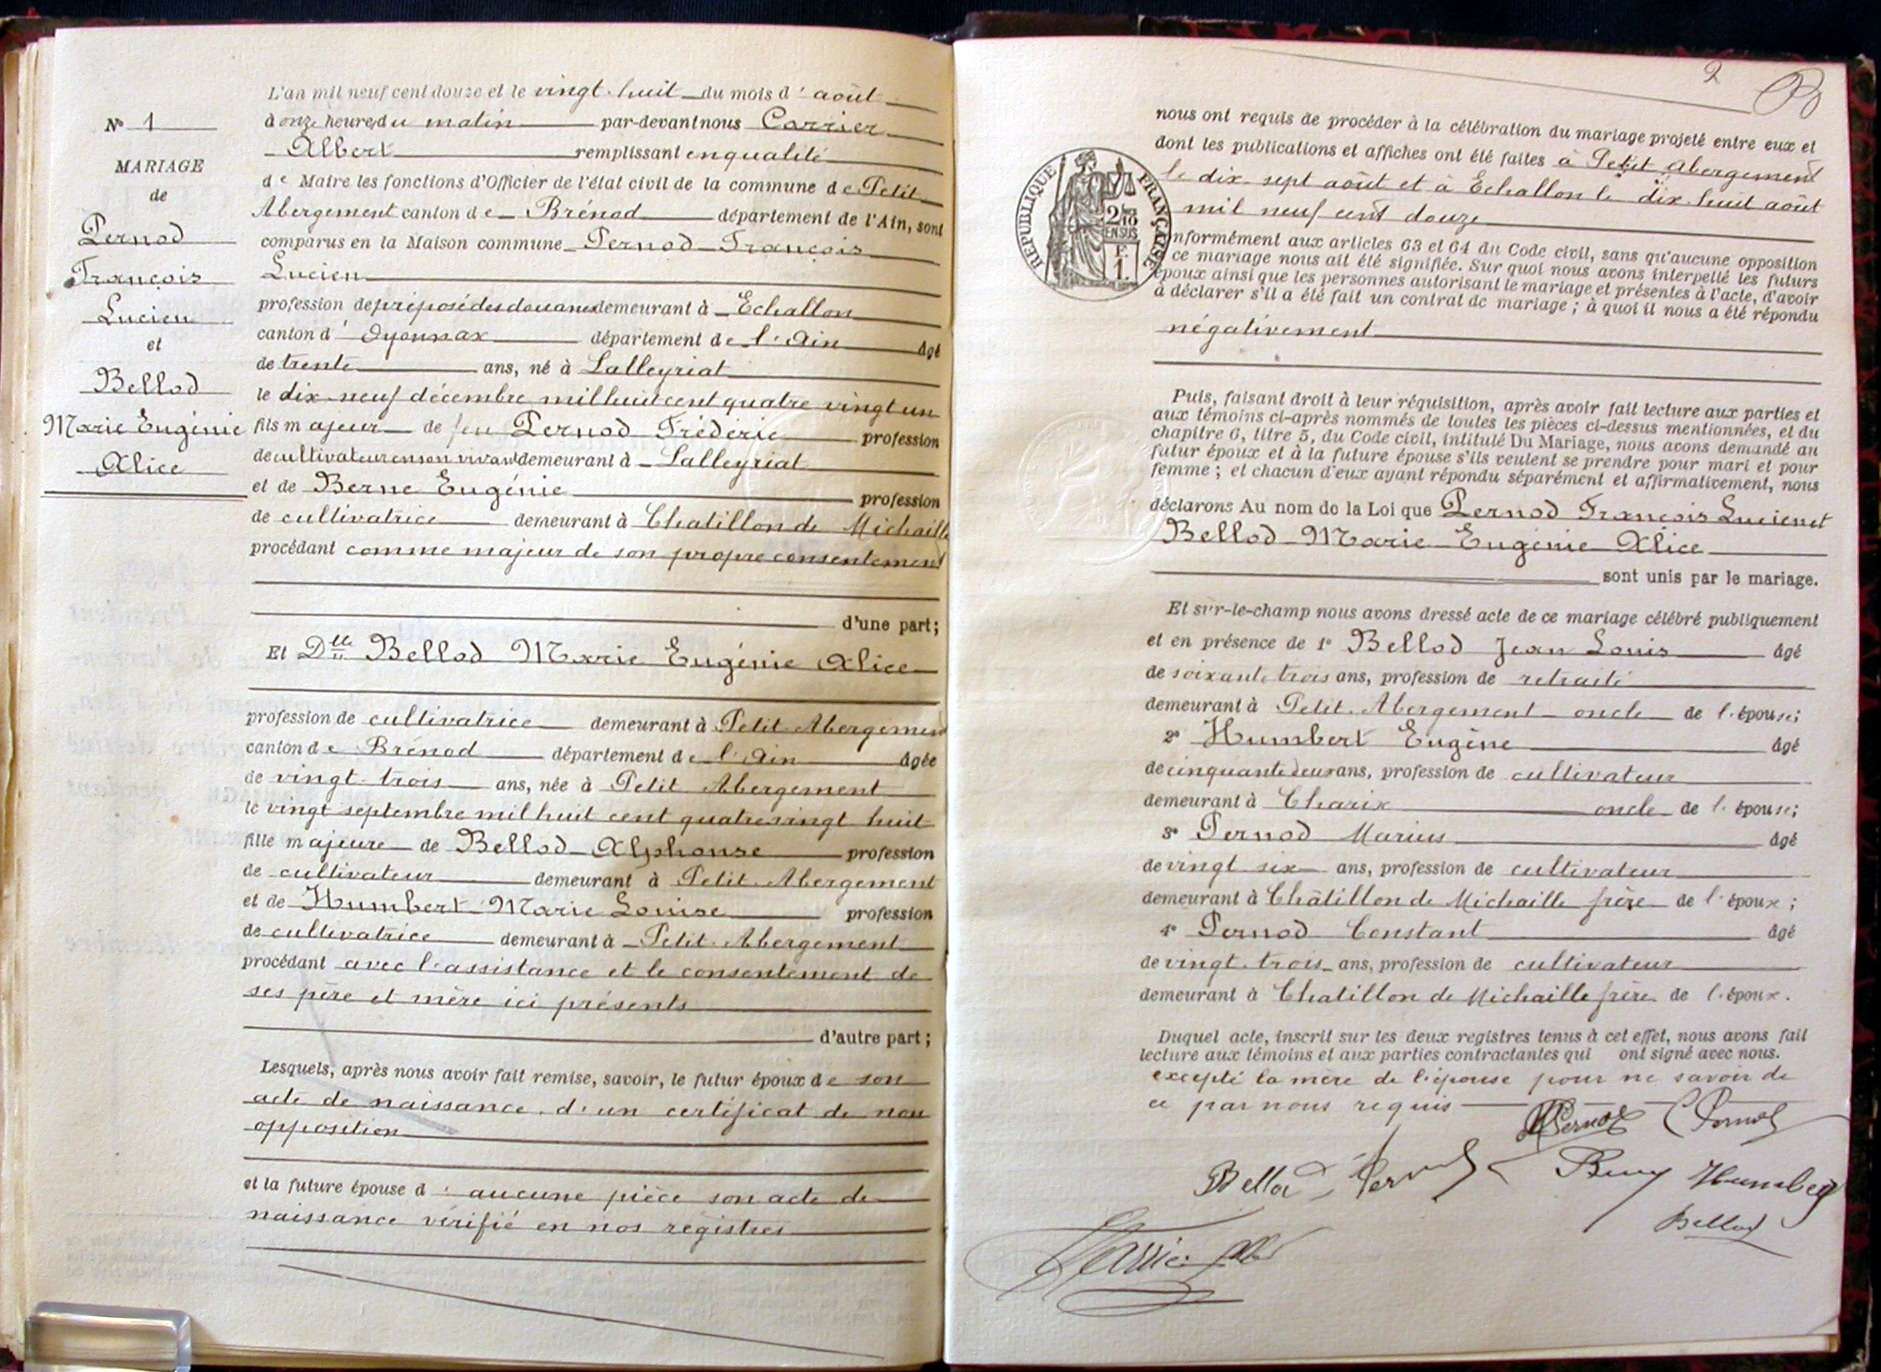 N° 1
MARIAGE
de
Pernod
François
Lucien
et
Bellod
Marie Eugénie
Alice
L'an mil neuf cent douze et le vingt-huit du mois d'août
à onze heures du matin par-devant nous Carrier
Albert remplissant en qualité
de Maire les fonctions d'Officier de l'état civil de la commune de Petit
Abergement canton de Brénod département de l'Ain, sont
comparus en la Maison commune Pernod François
Lucien
profession de préposé des douanes demeurant à Echallon
canton d'Oyonnax département de l'Ain âgé
de trente ans, né à Lalleyriat
le dix-neuf décembre mil huit cent quatre vingt un
fils majeur de feu Pernod Fréderic profession
de cultivateur en son vivant demeurant à Lalleyriat
et de Berne Eugénie profession
de cultivatrice demeurant à Chatillon de Michaille
procédant comme majeur de son propre consentement
d'une part;
Et Dlle Bellod Marie Eugénie Alice
profession de cultivatrice demeurant à Petit Abergement
canton de Brénod département de l'Ain âgée
de vingt-trois ans, née à Petit Abergement
le vingt septembre mil huit cent quatre vingt huit
fille majeure de Bellod Alphonse profession
de cultivateur demeurant à Petit Abergement
et de Humbert Marie Louise profession
de cultivatrice demeurant à Petit Abergement
procédant avec l'assistance et le consentement de
ses père et mère ici présents
d'autre part;
Lesquels, après nous avoir fait remise, savoir, le futur époux de son
acte de naissance, d'un certificat de non
opposition
et la future épouse d'aucune pièce son acte de
naissance vérifié en nos registres
2
nous ont requis de procéder à la célébration du mariage projeté entre eux et
dont les publications et affiches ont été faites à Petit Abergement
le dix-sept août et à Echallon le dix-huit août
mil neuf cent douze
RÉPUBLIQUE FRANÇAISE
2/10
EN SUS
F.
1.
nformément aux articles 63 et 64 du Code civil, sans qu'aucune opposition
ce mariage nous ait été signifiée. Sur quoi nous avons interpellé les futurs
époux ainsi que les personnes autorisant le mariage et présentes à l'acte, d'avoir
à déclarer s'il a été fait un contrat de mariage; à quoi il nous a été répondu
négativement
Puis, faisant droit à leur réquisition, après avoir fait lecture aux parties et
aux témoins ci-après nommés de toutes les pièces ci-dessus mentionnées, et du
chapitre 6, titre 5, du Code civil, intitulé Du Mariage, nous avons demandé au
futur époux et à la future épouse s'ils veulent se prendre pour mari et pour
femme; et chacun d'eux ayant répondu séparément et affirmativement, nous
déclarons Au nom de la Loi que Pernod François Lucien et
Bellod Marie Eugénie Alice
sont unis par le mariage.
Et sur-le-champ nous avons dressé acte de ce mariage célébré publiquement
et en présence de 1° Bellod Jean Louis âgé
de soixante trois ans, profession de retraité
demeurant à Petit-Abergement oncle de l'épouse;
2° Humbert Eugène âgé
de cinquante deux ans, profession de cultivateur
demeurant à Charix oncle de l'épouse;
3° Pernod Marius âgé
de vingt six ans, profession de cultivateur
demeurant à Châtillon de Michaille frère de l'époux;
4° Pernod Constant âgé
de vingt-trois ans, profession de cultivateur
demeurant à Chatillon de Michaille frère de l'époux.
Duquel acte, inscrit sur les deux registres tenus à cet effet, nous avons fait
lecture aux témoins et aux parties contractantes qui ont signé avec nous.
excepté la mère de l'épouse pour ne savoir de
ce par nous requis
Pernod C Pernod
Bellod Pernod Humbert
Bellod